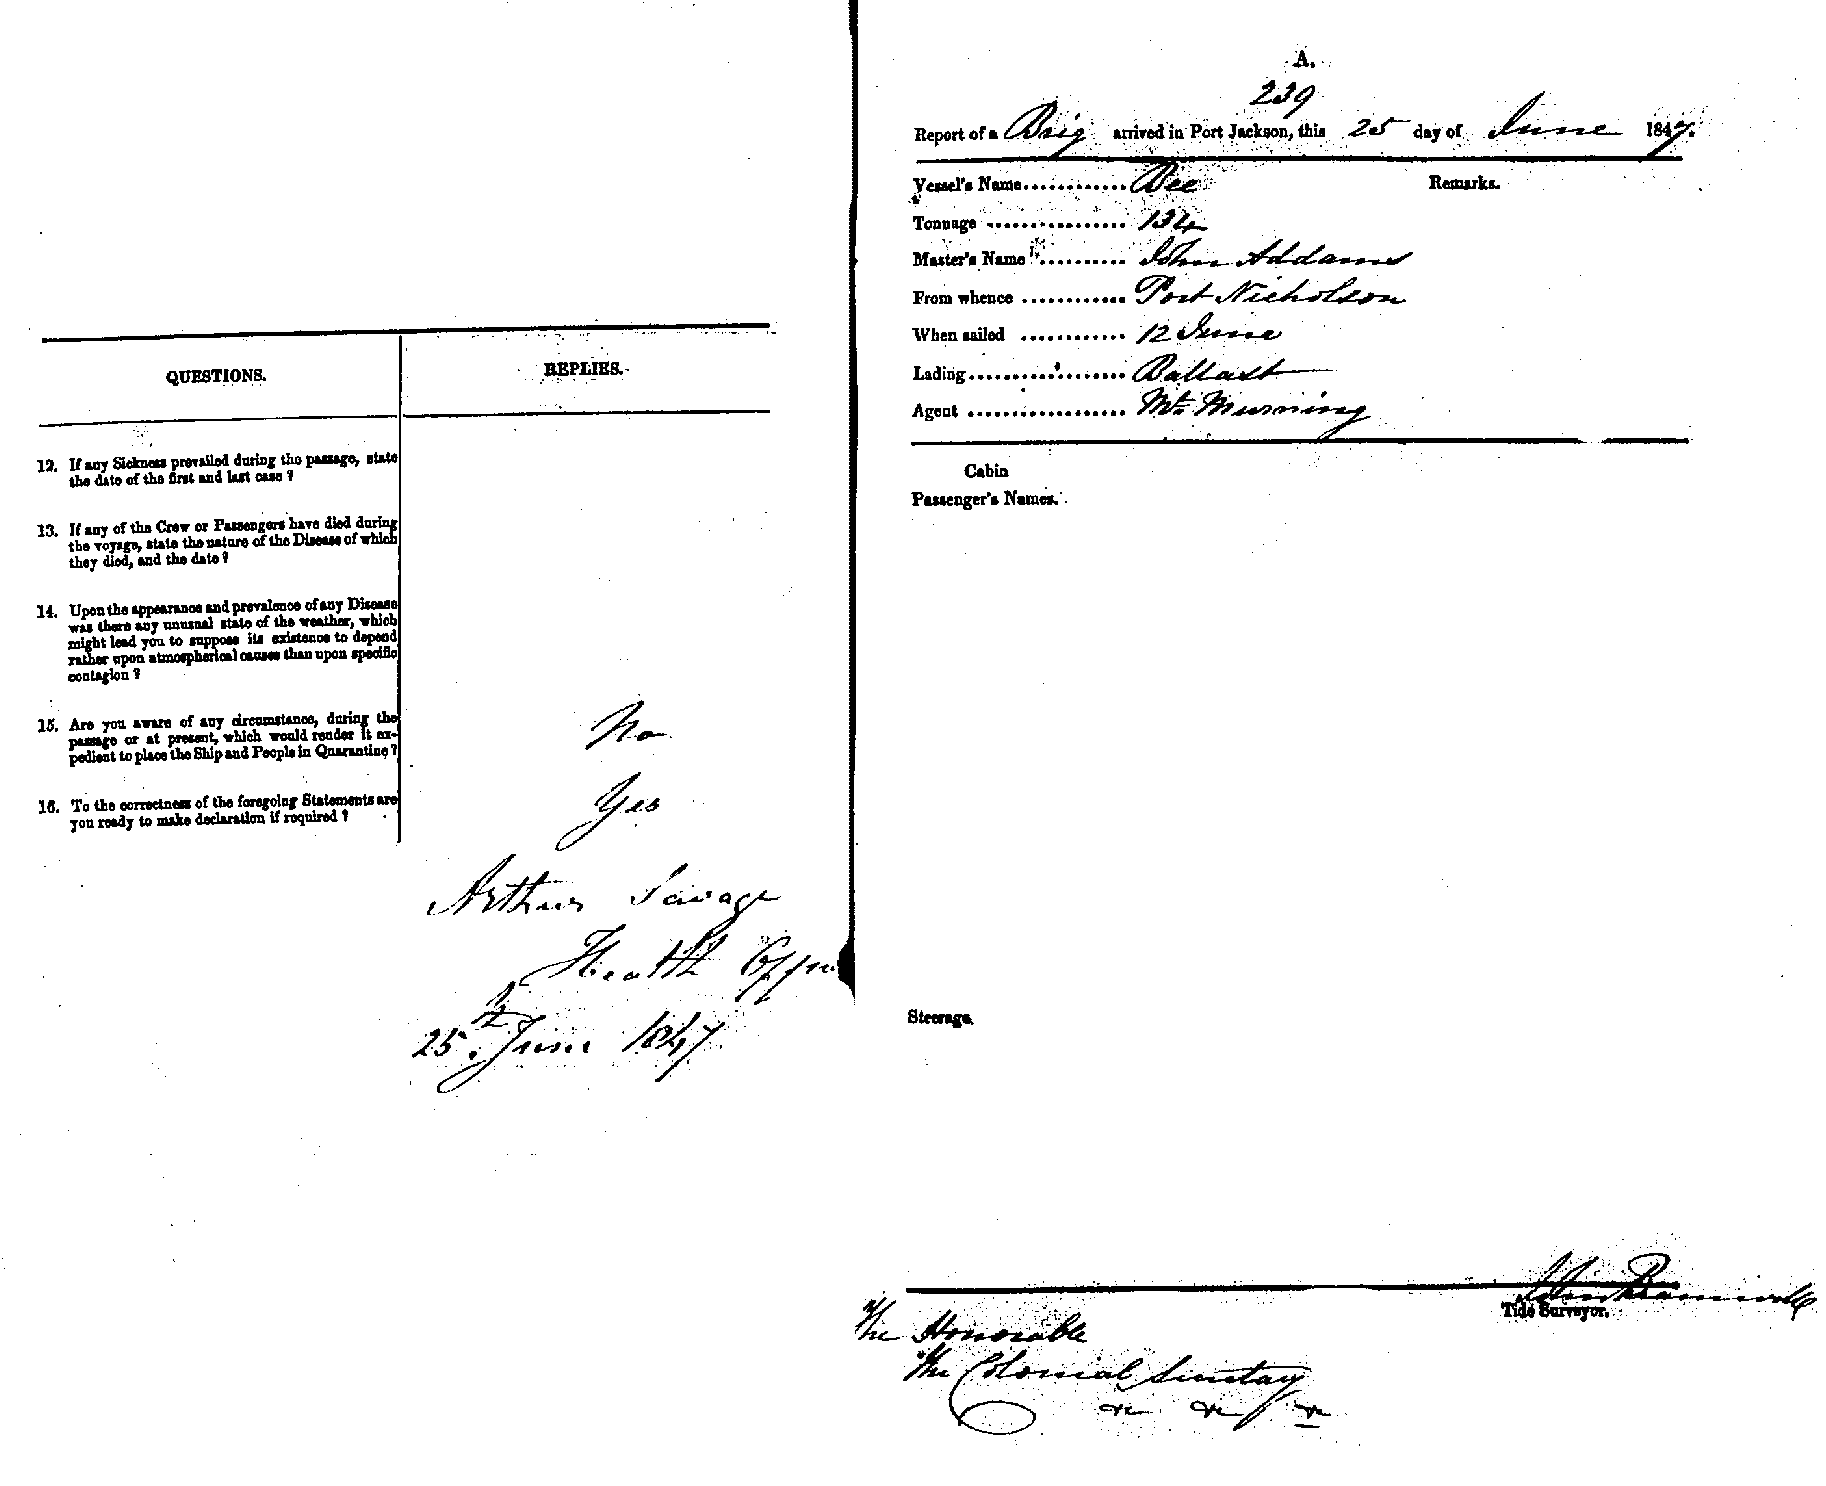 QUESTIONS.
REPLIES.
12. If any Sickness prevailed during the passage, state
the date of the first and last case ?
13. If any of the Crew or Passengers have died during
the voyage, state the nature of the Disease of which
they died, and the date ?
14. Upon the appearance and prevalence of any Disease
was there any unusual state of the weather, which
might lead you to suppose its existence to depend
rather upon atmospherical causes than upon specific
contagion ?
15. Are you aware of any circumstance, during the
passage or at present, which would render it ex-
pedient to place the Ship and People in Quarantine ?
No
16. To the correctness of the foregoing Statements are
you ready to make declaration if required ?
Yes
Arthur Savage
Health
25th June 1847
A.
239
Report of a Brig arrived in Port Jackson, this 25 day of June 1847.
Vessel's Name............. Bee
Remarks.
Tonnage ................. 134
Master's Name ........... John Addams
From whence ............ Port Nicholson
When sailed ............ 12 June
Lading................... Ballast
Agent ................... Mr.
Cabin
Passenger's Names.
Steerage.
John
Tide Surveyor.
The Honorable
The Colonial Secretary